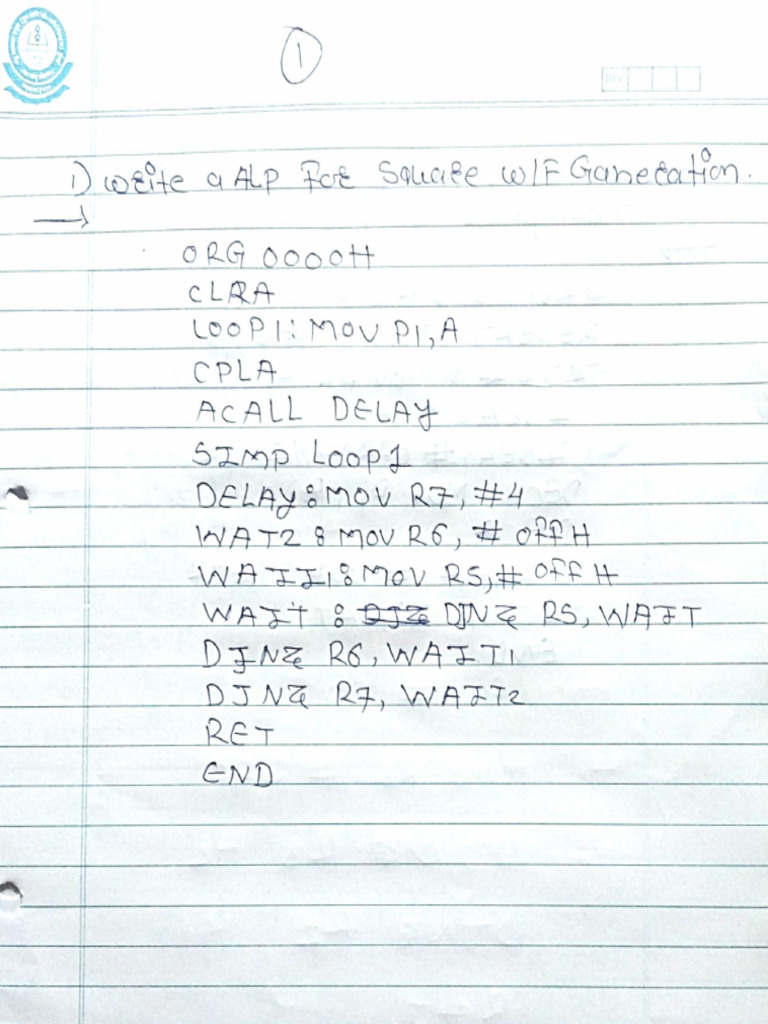 1
1) Write a ALP For Square W/F Ganeration.
ORG 0000H
CLRA
LOOP1: MOV P1, A
CPLA
ACALL DELAY
SJMP LOOP1
DELAY: MOV R7, #4
WAT2: MOV R6, # OffH
WAIT1: MOV R5, # OffH
WAIT: DJNZ R5, WAIT
DJNZ R6, WAIT1
DJNZ R7, WAIT2
RET
END